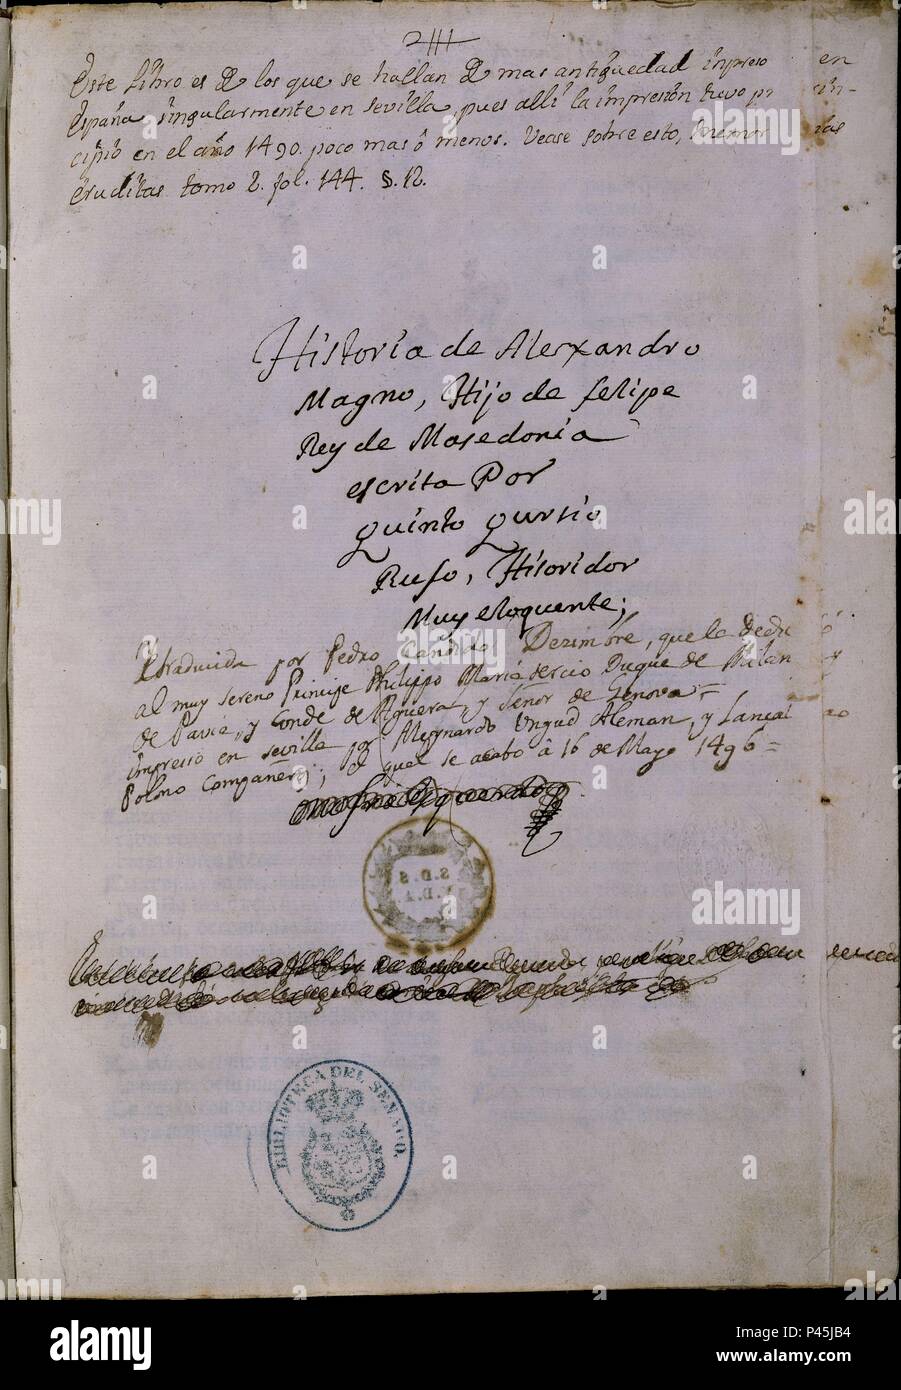 Este Libro es de los que se hallan de mas antiguedad inpreso en
España, singularmente en Sevilla, pues alli la impresion tuvo prin-
cipio en el año 1490. poco mas ô menos. Vease sobre esto, Memorias
eruditas tomo 2. fol. 144. §. 12.
Historia de Alexandro
Magno, Hijo de felipe
Rey de Masedonia
escrita Por
Quinto Qursio
Rufo, Historidor
Muy eloquente;
traducida por Pedro Candido Dezimbre, que la dedicó
al muy sereno Principe Philippo Maria tercio Duque de Milan y
de Pavia, y Conde de Aguera, y Señor de Genova=
impresso en Sevilla por Meynardo Ungud Aleman, y Lançalao
Polono Compañero; el qual se acabo â 16 de Mayo 1496=
S.D.S
V.D.A.
BIBLIOTECA DEL SENADO.
alamy
a
alamy
Image ID: P45JB4
www.alamy.com